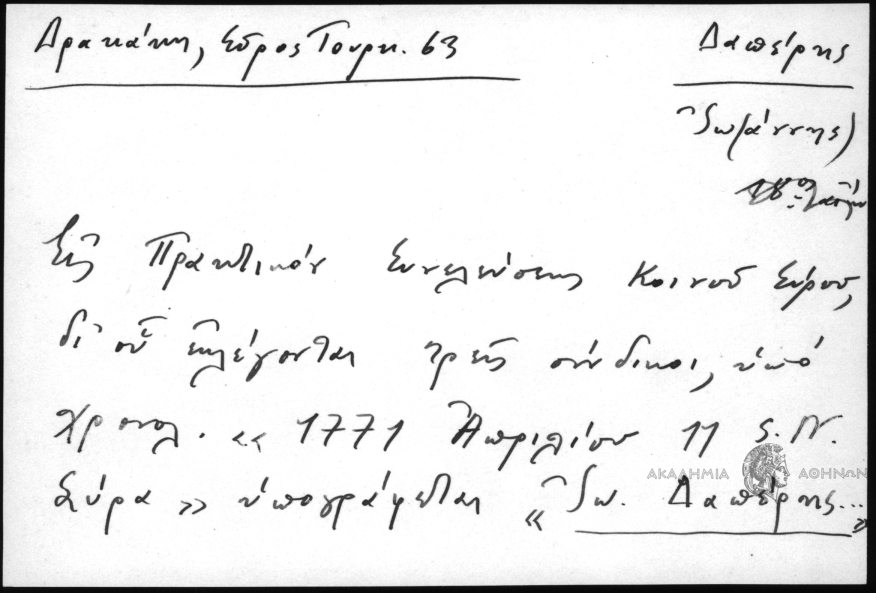 Δρακάκη, Σῦρος Τουρκ. 63
Δαπέρης
Ἰω(άννης)
18ος
Εἰς Πρακτικὸν Συνελεύσεως Κοινοῦ Σύρου,
δι' οὗ ἐκλέγονται τρεῖς σύνδικοι, ὑπὸ
χρονολ. «1771 Ἀπριλίου 11 S. N.
Σύρα» ὑπογράφεται «Ἰω. Δαπέρης...»
ΑΚΑΔΗΜΙΑ ΑΘΗΝΩΝ